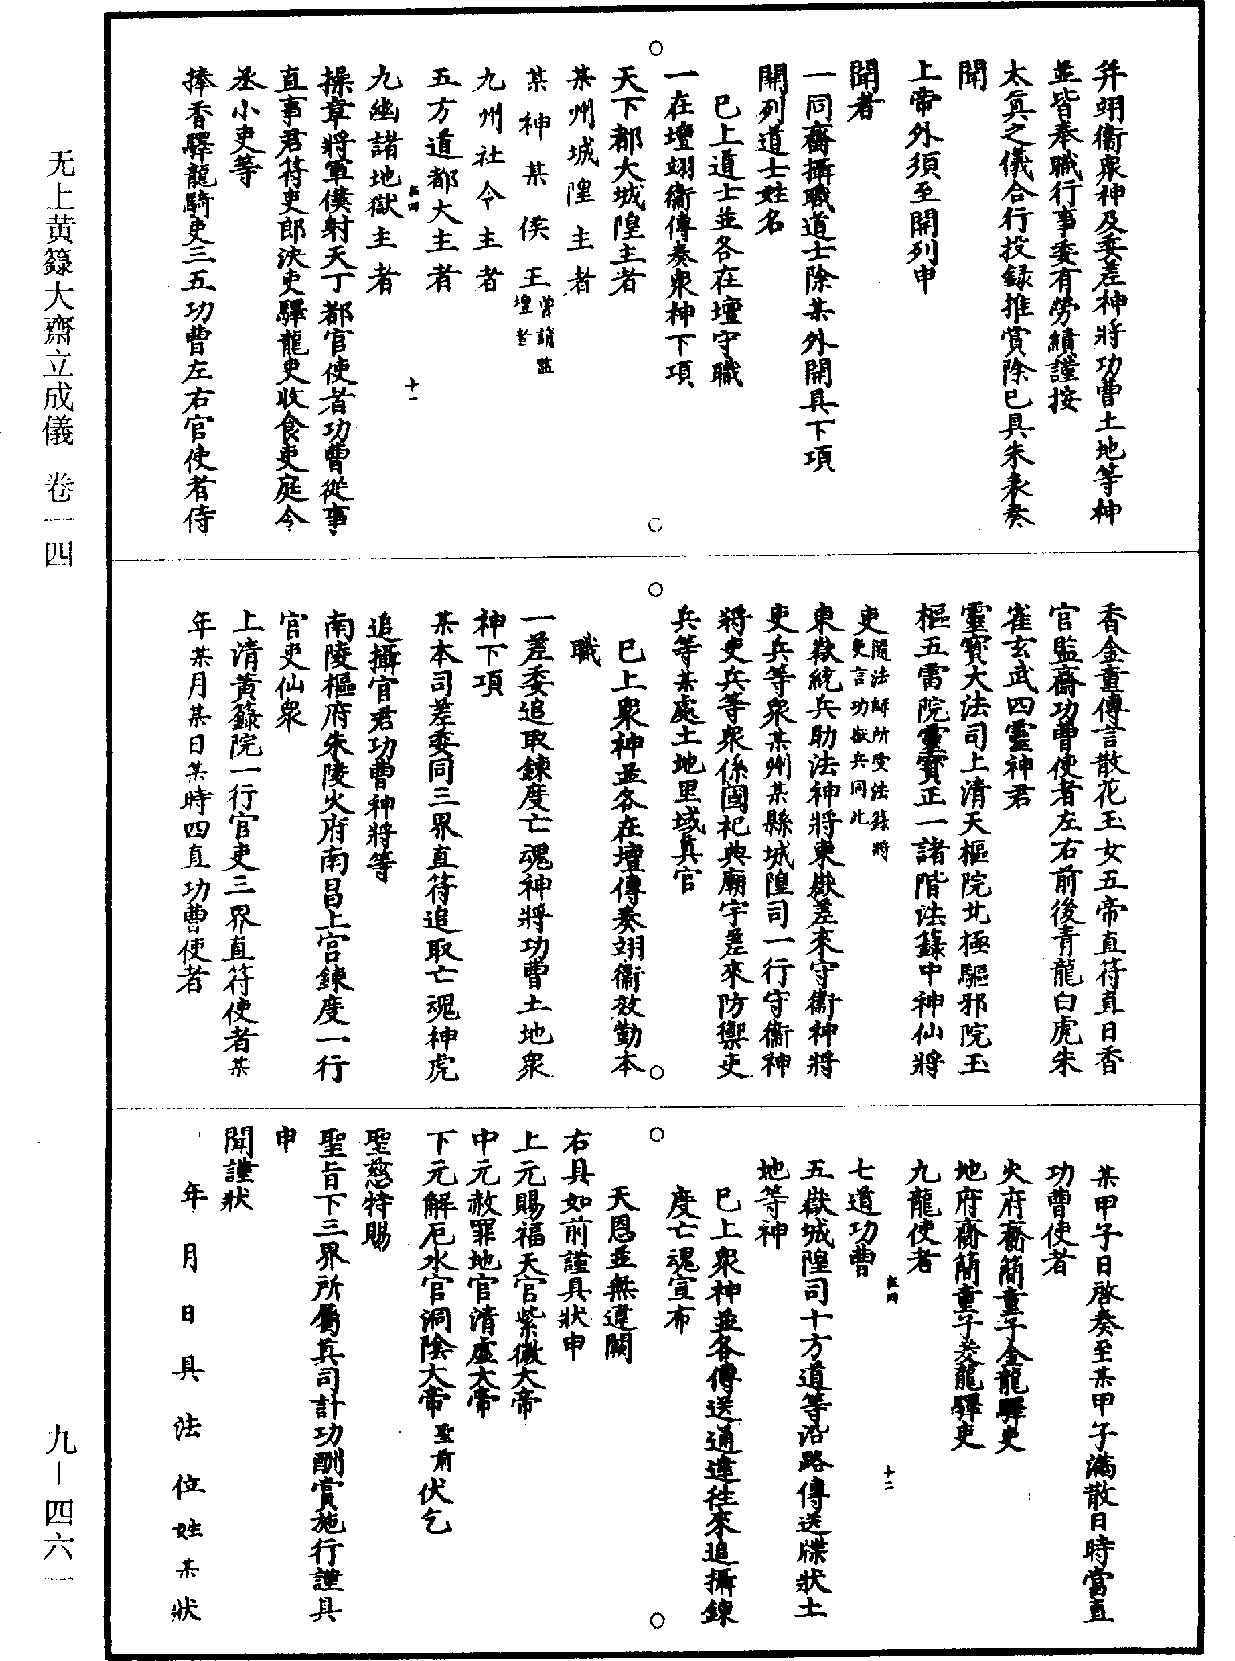 无上黄籙大齋立成儀 卷一四
九一四六一
并翊衞衆神及委差神將功曹土地等神
並皆奉職行事委有勞績謹按
太真之儀合行投録推賞除已具朱表奏
聞
上帝外須至開列申
聞者
一同齋攝職道士除某外開具下項
開列道士姓名
已上道士並各在壇守職
一在壇翊衞傳奏衆神下項
天下都大城隍主者
某州城隍主者
某神某侯王
九州社令主者
五方道都大主者
九幽諸地獄主者
操章將軍僕射天丁都官使者功曹從事
直事君符吏郎決吏驛龍吏收食吏庭令
丞小吏等
捧香驛龍騎吏三五功曹左右官使者侍
十一
香金童傳言散花玉女五帝直符直日香
官監齋功曹使者左右前後青龍白虎朱
雀玄武四靈神君
靈寶大法司上清天樞院北極驅邪院玉
樞五雷院靈寶正一諸階法籙中神仙將
吏隨法師所受法籙將吏言功嶽兵同此
東嶽統兵助法神將東嶽差來守衞神將
吏兵等衆某州某縣城隍司一行守衞神
將吏兵等衆係國祀典廟宇差來防禦吏
兵等某處土地里域真官
已上衆神並各在壇傳奏翊衞效勤本
職
一差委追取鍊度亡魂神將功曹土地衆
神下項
某本司差委同三界直符追取亡魂神虎
追攝官君功曹神將等
南陵樞府朱陵火府南昌上宮鍊度一行
官吏仙衆
上清黃籙院一行官吏三界直符使者某
年某月某日某時四直功曹使者
某甲子日啓奏至某甲子滿散日時當直
功曹使者
火府齋簡童子金龍驛吏
地府齋簡童子茭龍驛吏
九龍使者
七道功曹
十二
五嶽城隍司十方道等沿路傳送牒狀土
地等神
已上衆神並各傳送通達往來追攝鍊
度亡魂宣布
天恩並無違闕
右具如前謹具狀申
上元賜福天官紫微大帝
中元赦罪地官清虛大帝
下元解厄水官洞陰大帝聖前伏乞
聖慈特賜
聖旨下三界所屬真司計功酬賞施行謹具
申
聞謹狀
年月日具法位姓某狀